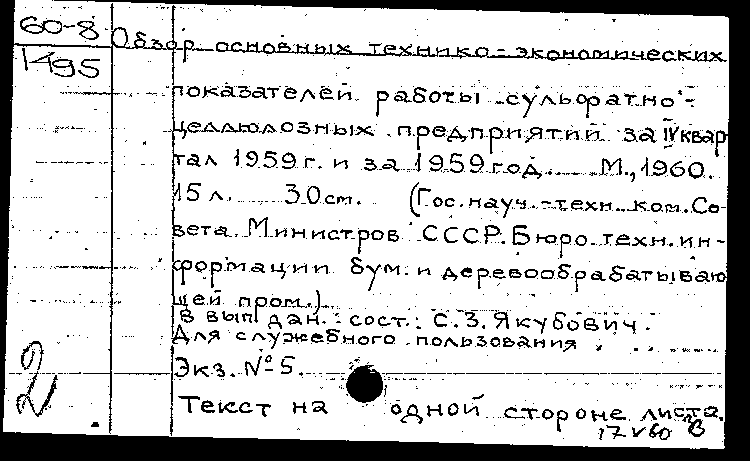 60-8
1495
Обзор основных технико-экономических
показателей работы сульфатно-
целлюлозных предприятий за IV квар
тал 1959 г. и за 1959 год. М., 1960.
15 л. 30 см. (Гос. науч.-техн. ком. Со
вета Министров СССР. Бюро техн. ин-
формации бум. и деревообрабатываю
щей пром.)
В вып. дан. сост.: С.З. Якубович.
Для служебного пользования
Экз. № 5.
2
Текст на одной стороне листа.
17 V 60